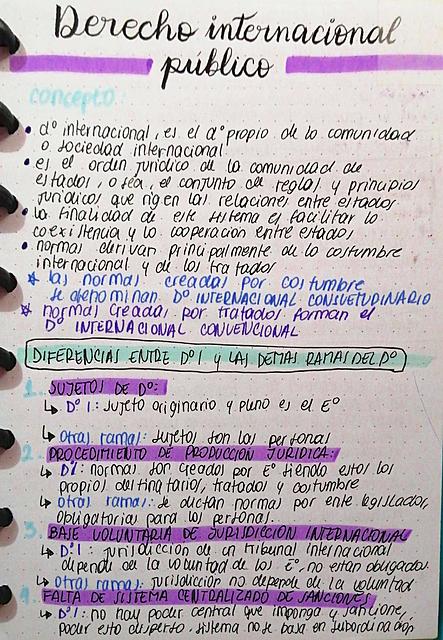 Derecho internacional
público
concepto:
• dº internacional, es el dº propio de la comunidad
o sociedad internacional.
• es el orden jurídico de la comunidad de
estados, o sea, el conjunto de reglas y principios
jurídicos que rigen las relaciones entre estados
• la finalidad de este sistema es facilitar la
coexistencia y la cooperación entre estados
• normas derivan principalmente de la costumbre
internacional y de los tratados
* las normas creadas por costumbre
se denominan Dº INTERNACIONAL CONSUETUDINARIO
* normas creadas por tratados forman el
Dº INTERNACIONAL CONVENCIONAL
DIFERENCIAS ENTRE DºI y LAS DEMAS RAMAS DEL Dº
1. SUJETOS DE Dº:
↳ Dº I: sujeto originario y pleno es el Eº
↳ Otras ramas: sujetos son las personas
2. PROCEDIMIENTO DE PRODUCCIÓN JURÍDICA:
↳ DºI: normas son creadas por Eº siendo estos los
propios destinatarios, tratados y costumbre
↳ otras ramas: se dictan normas por ente legislador,
obligatorias para las personas.
3. BASE VOLUNTARIA DE JURISDICCIÓN INTERNACIONAL
↳ DºI: jurisdicción de un tribunal internacional
depende de la voluntad de los Eº, no están obligados.
↳ Otras ramas: jurisdicción no depende de la voluntad
4. FALTA DE SISTEMA CENTRALIZADO DE SANCIONES
↳ DºI: no hay poder central que imponga y sancione,
poder esta disperso, sistema no se basa en subordinación